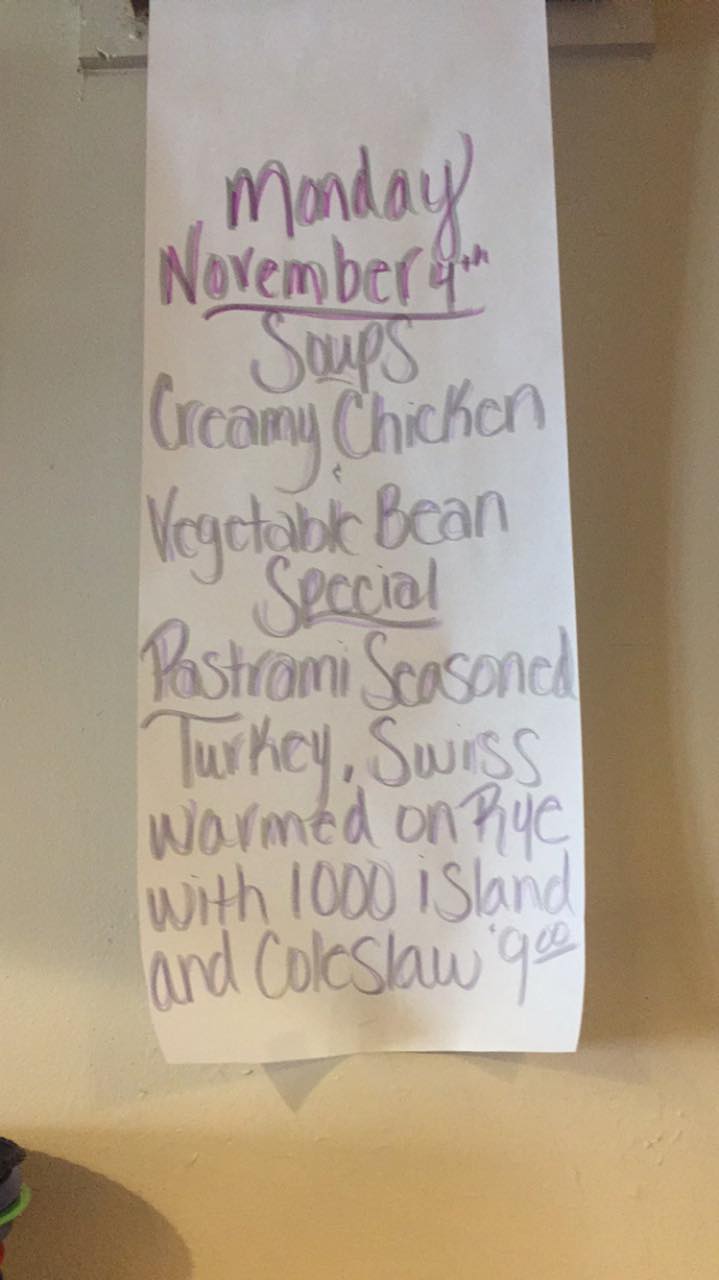 Monday
November 4th
Soups
Creamy Chicken
&
Vegetable Bean
Special
Pastrami Seasoned
Turkey, Swiss
warmed on Rye
with 1000 island
and Coleslaw $9.00